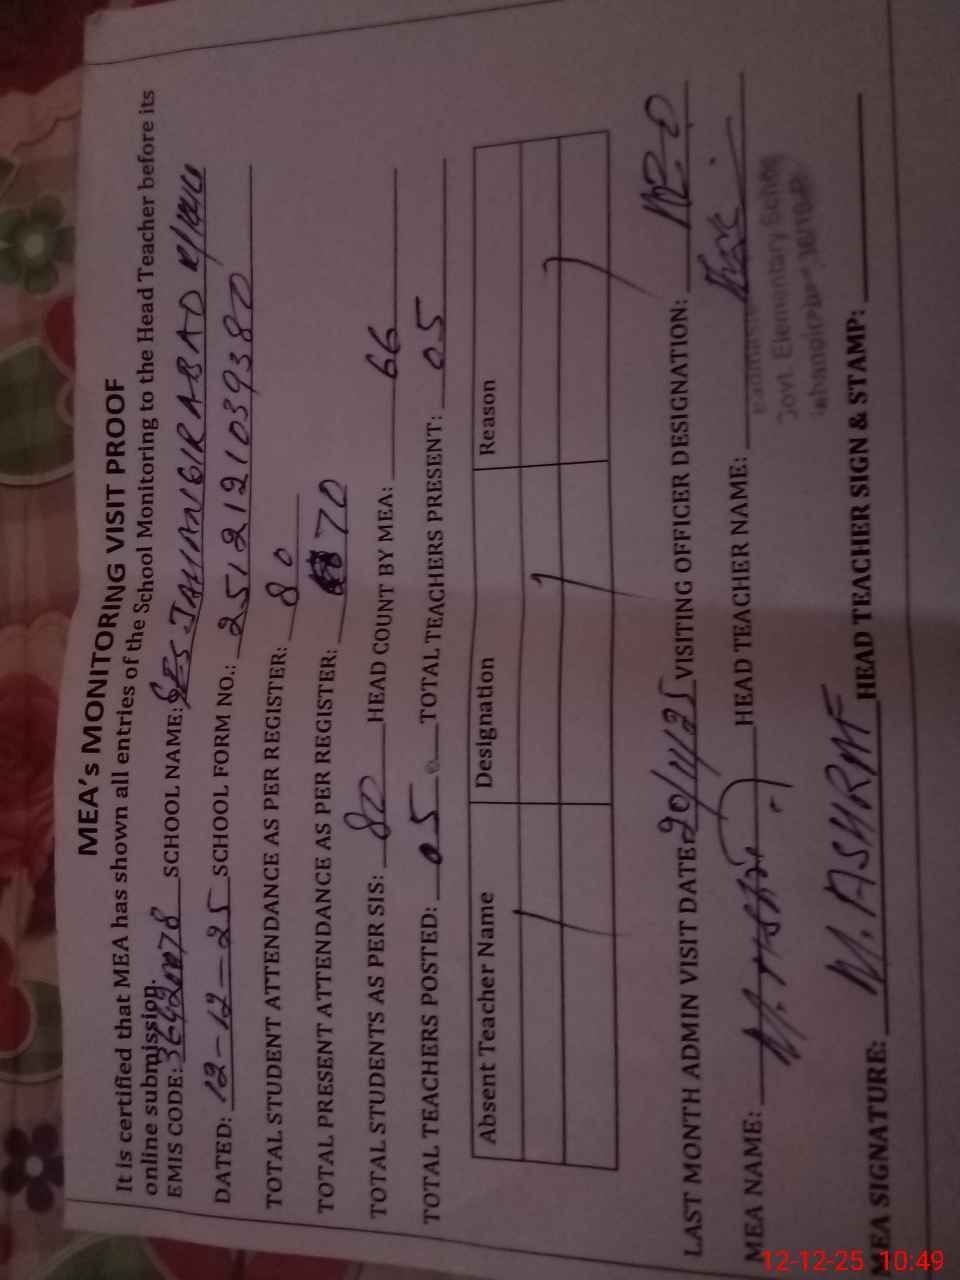 MEA's MONITORING VISIT PROOF
It is certified that MEA has shown all entries of the School Monitoring to the Head Teacher before its
online submission.
EMIS CODE: SCHOOL NAME: GES JAHANGIRABAD
DATED: 12-12-25 SCHOOL FORM NO.: 2512121039380
TOTAL STUDENT ATTENDANCE AS PER REGISTER: 80
TOTAL PRESENT ATTENDANCE AS PER REGISTER: 70
TOTAL STUDENTS AS PER SIS: 80 HEAD COUNT BY MEA: 66
TOTAL TEACHERS POSTED: 05 TOTAL TEACHERS PRESENT: 05
Absent Teacher Name Designation Reason
LAST MONTH ADMIN VISIT DATE 20/11/25 VISITING OFFICER DESIGNATION:
MEA NAME: HEAD TEACHER NAME:
Govt. Elementary School
MEA SIGNATURE: M. ASHRAF HEAD TEACHER SIGN & STAMP:
12-12-25 10:49